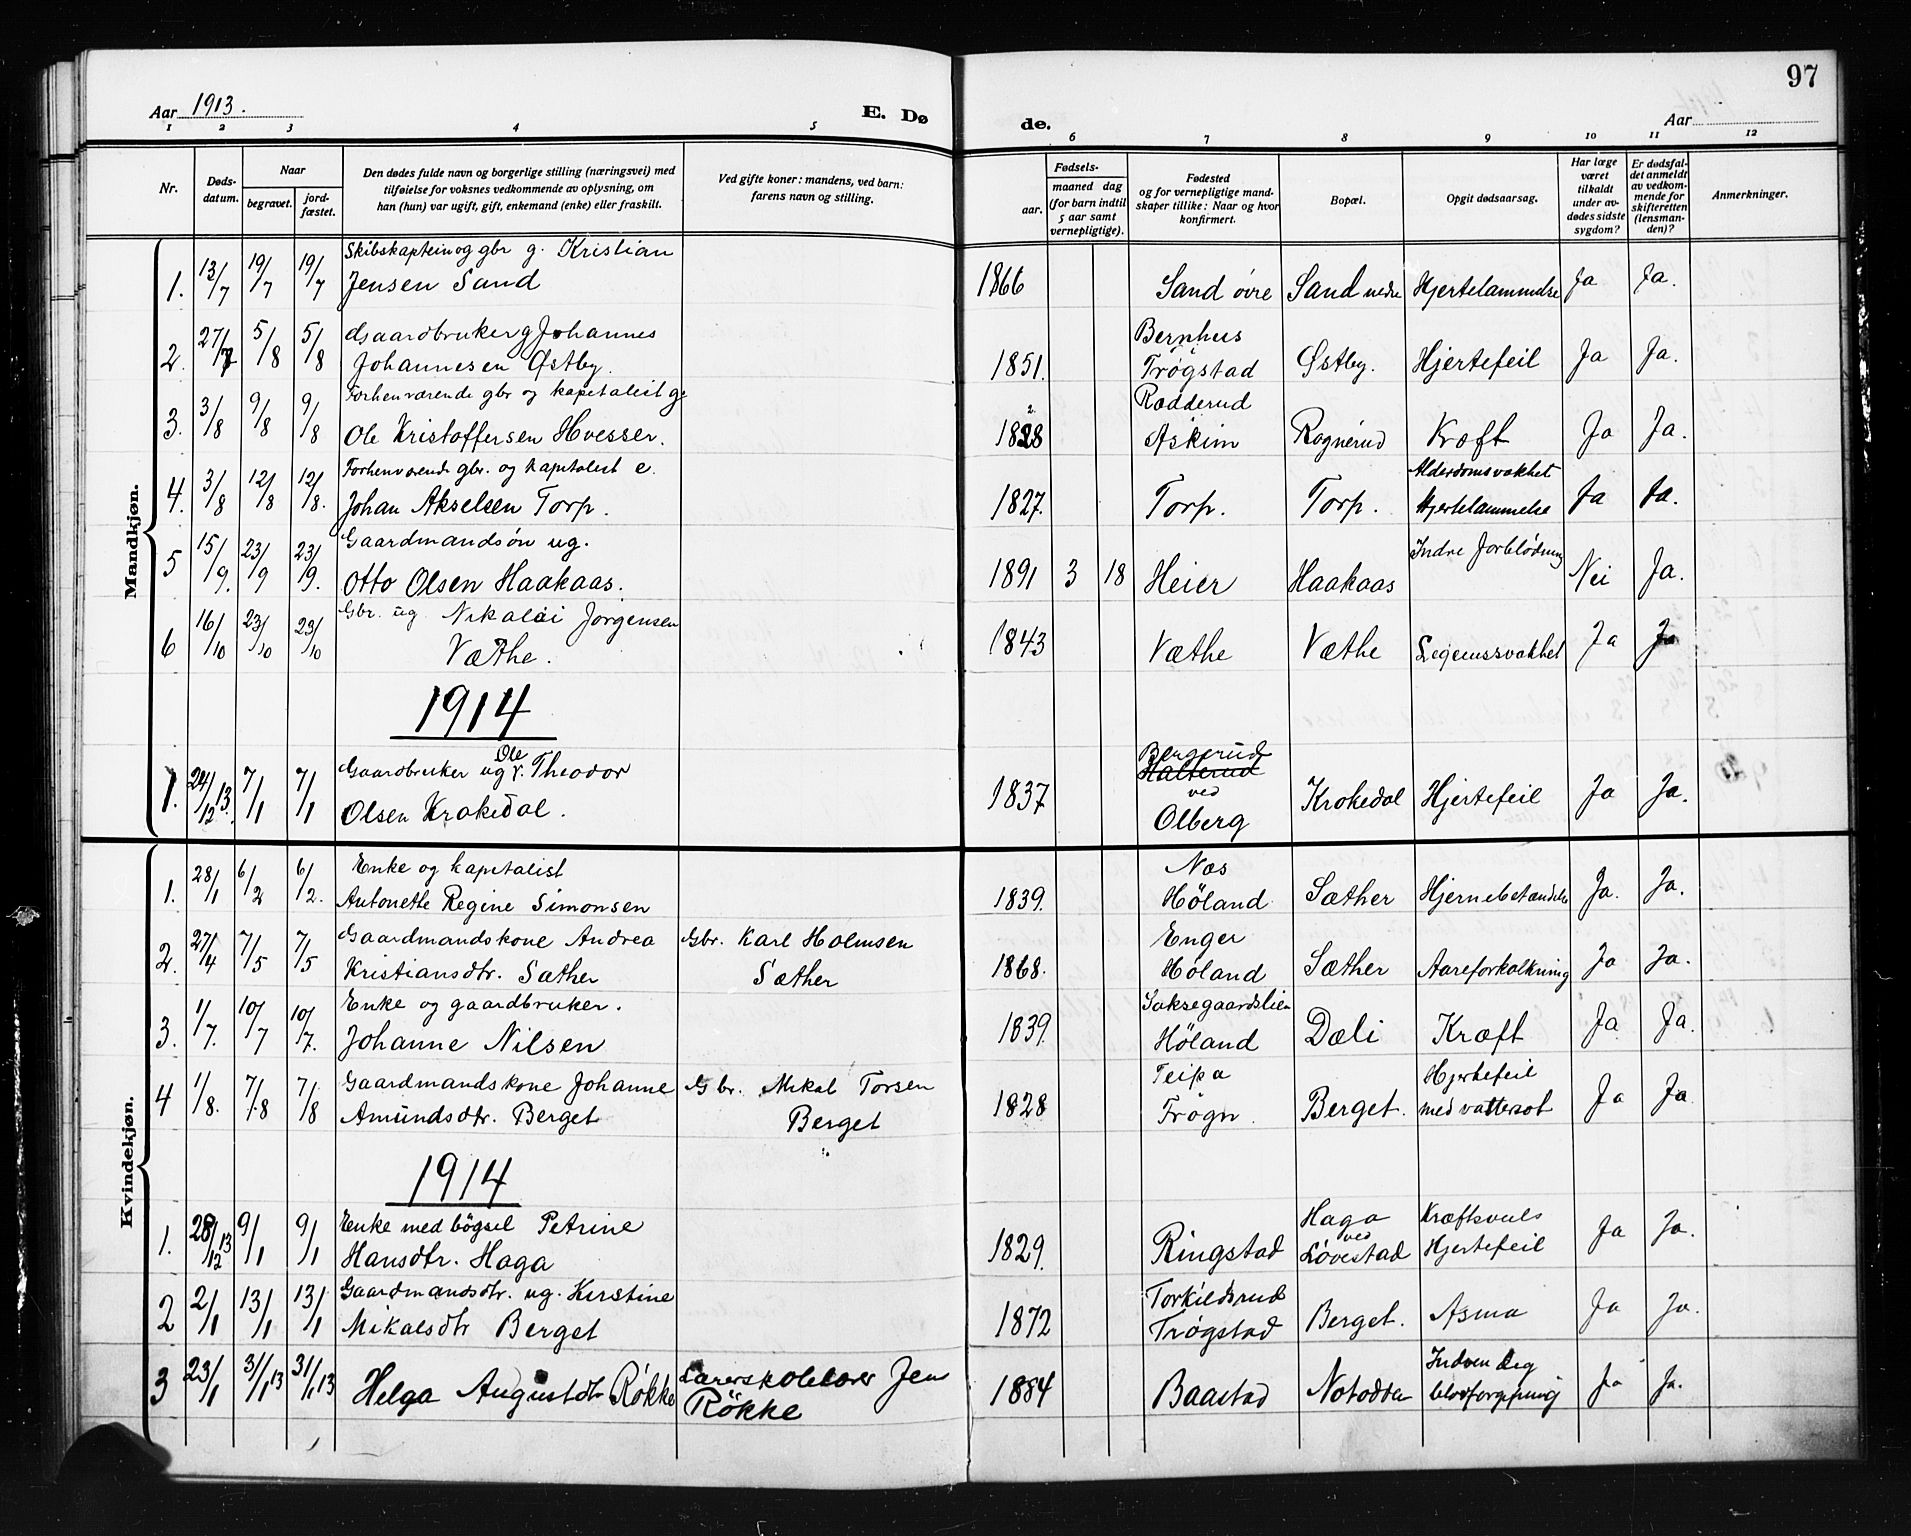 97
Aar 1913.
E. Dø
de.
Aar
1 2 3 4 5 6 7 8 9 10 11 12
Nr.
Døds-
datum.
Naar
begravet.
jord-
fæstet.
Den dødes fulde navn og borgerlige stilling (næringsvei) med
tilføielse for voksnes vedkommende av oplysning, om
han (hun) var ugift, gift, enkemand (enke) eller fraskilt.
Ved gifte koner: mandens, ved barn:
farens navn og stilling.
Fødsels-
aar.
maaned dag
(for barn indtil
5 aar samt
vernepligtige).
Fødested
og for vernepligtige mand-
skaper tillike: Naar og hvor
konfirmert.
Bopæl.
Opgit dødsaarsag.
Har læge
været
tilkaldt
under av-
dødes sidste
sygdom?
Er dødsfal-
det anmeldt
av vedkom-
mende for
skifteretten
(lensman-
den)?
Anmerkninger.
Mandkjøn.
Skibskaptein og gbr g. Kristian
1. 13/7 19/7 19/7 Jensen Sand 1866 Sand øvre Sand nedre Hjertelammelse Ja Ja.
Gaardbruker g Johannes Bernhus
2. 27/7 5/8 5/8 Johannesen Østby. 1851. Trøgstad Østby. Hjertefeil Ja Ja.
Forhenværende gbr og kapitalist g. Rødderud
3. 3/8 9/8 9/8 Ole Kristoffersen Hvesser. 1828 Askim Rognerud Kræft Ja Ja.
Forhenværende gbr. og kapitalist e. Alderdomsvakhet
4. 3/8 12/8 12/8. Johan Akselsen Torp. 1827. Torp. Torp. Hjertelammelse Ja Ja.
Gaardmandsøn ug. Indre forblødning
5 15/9. 23/9 23/9. Otto Olsen Haakaas. 1891 3 18 Heier Haakaas Nei Ja.
Gbr. ug Nikolai Jørgensen
6 16/10 23/10 23/10 Væthe. 1843 Væthe Væthe Legemssvakhet Ja Ja
1914
Ole Bergerud
Gaardbruker ug v. Theodor Halterud
ved
1. 24/12 13. 7/1 7/1 Olsen Krokedal. 1837 Olberg Krokedal Hjertefeil Ja Ja.
Kvindekjøn.
Enke og kapitalist Næs
1. 28/1 6/2 6/2. Antonette Regine Simonsen 1839. Høland Sæther Hjernebetændelse Ja. Ja.
Gaardmandskone Andrea Gbr. Karl Holmsen Enger
2. 27/4 7/5 7/5 Kristiansdtr. Sæther Sæther 1868. Høland Sæther Aareforkalkning Ja Ja.
Enke og gaardbruker. Saksegaardslien
3. 1/7. 10/7 10/7. Johanne Nilsen 1839. Høland Dæli Kræft Ja Ja.
Gaardmandskone Johanne Gbr. Mikal Torsen Teipa Hjertefeil
4 1/8. 7/8 7/8 Amundsdtr. Berget Berget 1828 Frogn. Berget. med vattersot Ja Ja
1914
Enke med bøgsel Petrine Haga Kræftsvuls
ved
1. 28/12 13 9/1 9/1 Hansdtr. Haga 1829. Ringstad Løvestad Hjertefeil Ja Ja.
Gaardmandsdtr. ug. Kirstine Torkildsrud
2 2/1 13/1 13/1 Mikalsdtr Berget 1872 Trøgstad Berget. Asma Ja Ja.
Lærerskolelærer Jen Indvendig
3 23/1 31/1 13 31/1 13 Helga Augustdtr Røkke Røkke 1884 Baastad Notodden blodforgiftning Ja Ja.